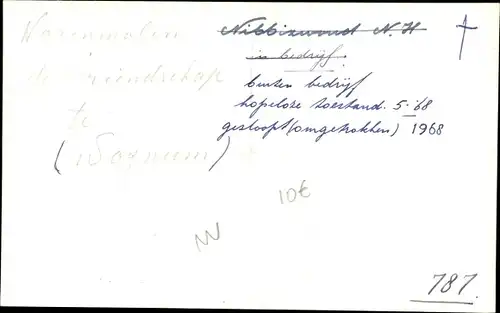 Korenmolen
de vriendschap
te
(Wognum)
Nibbixwoud N.H
in bedrijf.
buiten bedrijf
hopeloze toestand. 5-'68
gesloopt (omgetrokken) 1968
10€
787.